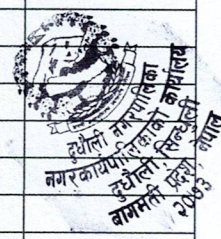 दुधौली नगरपालिका
नगर कार्यपालिकाको कार्यालय
दुधौली, सिन्धुली
बागमती प्रदेश, नेपाल
२०७३